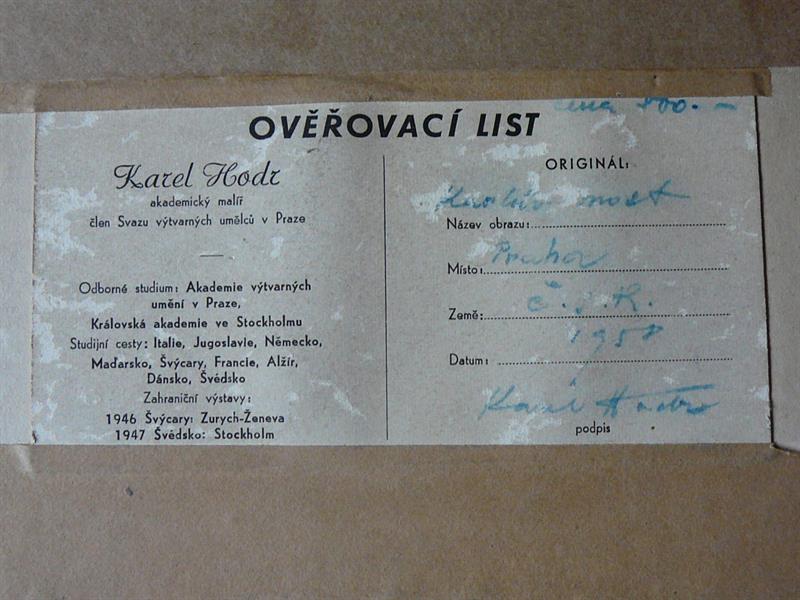 cena 800.-
OVĚŘOVACÍ LIST
Karel Hodr
akademický malíř
člen Svazu výtvarných umělců v Praze
Odborné studium: Akademie výtvarných
umění v Praze,
Královská akademie ve Stockholmu
Studijní cesty: Italie, Jugoslavie, Německo,
Maďarsko, Švýcary, Francie, Alžír,
Dánsko, Švédsko
Zahraniční výstavy:
1946 Švýcary: Zurych-Ženeva
1947 Švédsko: Stockholm
ORIGINÁL:
Karlův most
Název obrazu:
Praha
Místo:
Č.S.R.
Země:
1958
Datum:
Karel Hodr
podpis